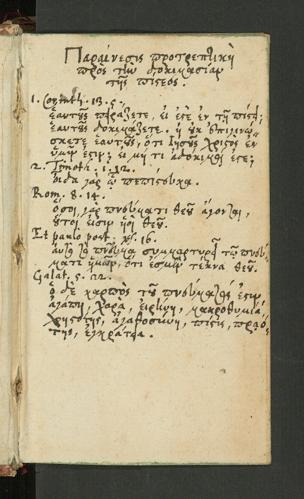 Παραίνεσις προτρεπτικὴ
πρὸς τὴν δοκιμασίαν
τῆς πίστεος.
1. Corinth. 13. 5.
ἑαυτοὺς πειράζετε, εἰ ἐστὲ ἐν τῇ πίστει,
ἑαυτοὺς δοκιμάζετε. ἢ οὐκ ἐπιγινώ-
σκετε ἑαυτοὺς, ὅτι Ιησοῦς Χριστὸς ἐν
ὑμῖν ἐστιν; εἰ μή τι ἀδόκιμοί ἐστε;
2. Timoth. 1. 12.
οἶδα γὰρ ᾧ πεπίστευκα.
Rom. 8. 14.
ὅσοι γὰρ πνεύματι θεοῦ ἄγονται,
οὗτοί εἰσιν υἱοὶ θεοῦ.
Et paulo post. 16.
αὐτὸ τὸ πνεῦμα συμμαρτυρεῖ τῷ πνεύ-
ματι ἡμῶν, ὅτι ἐσμὲν τέκνα θεοῦ.
Galat. 5. 22.
ὁ δὲ καρπὸς τοῦ πνεύματός ἐστιν,
ἀγάπη, χαρὰ, εἰρήνη, μακροθυμία,
χρηστότης, ἀγαθοσύνη, πίστις, πραό-
της, ἐγκράτεια.